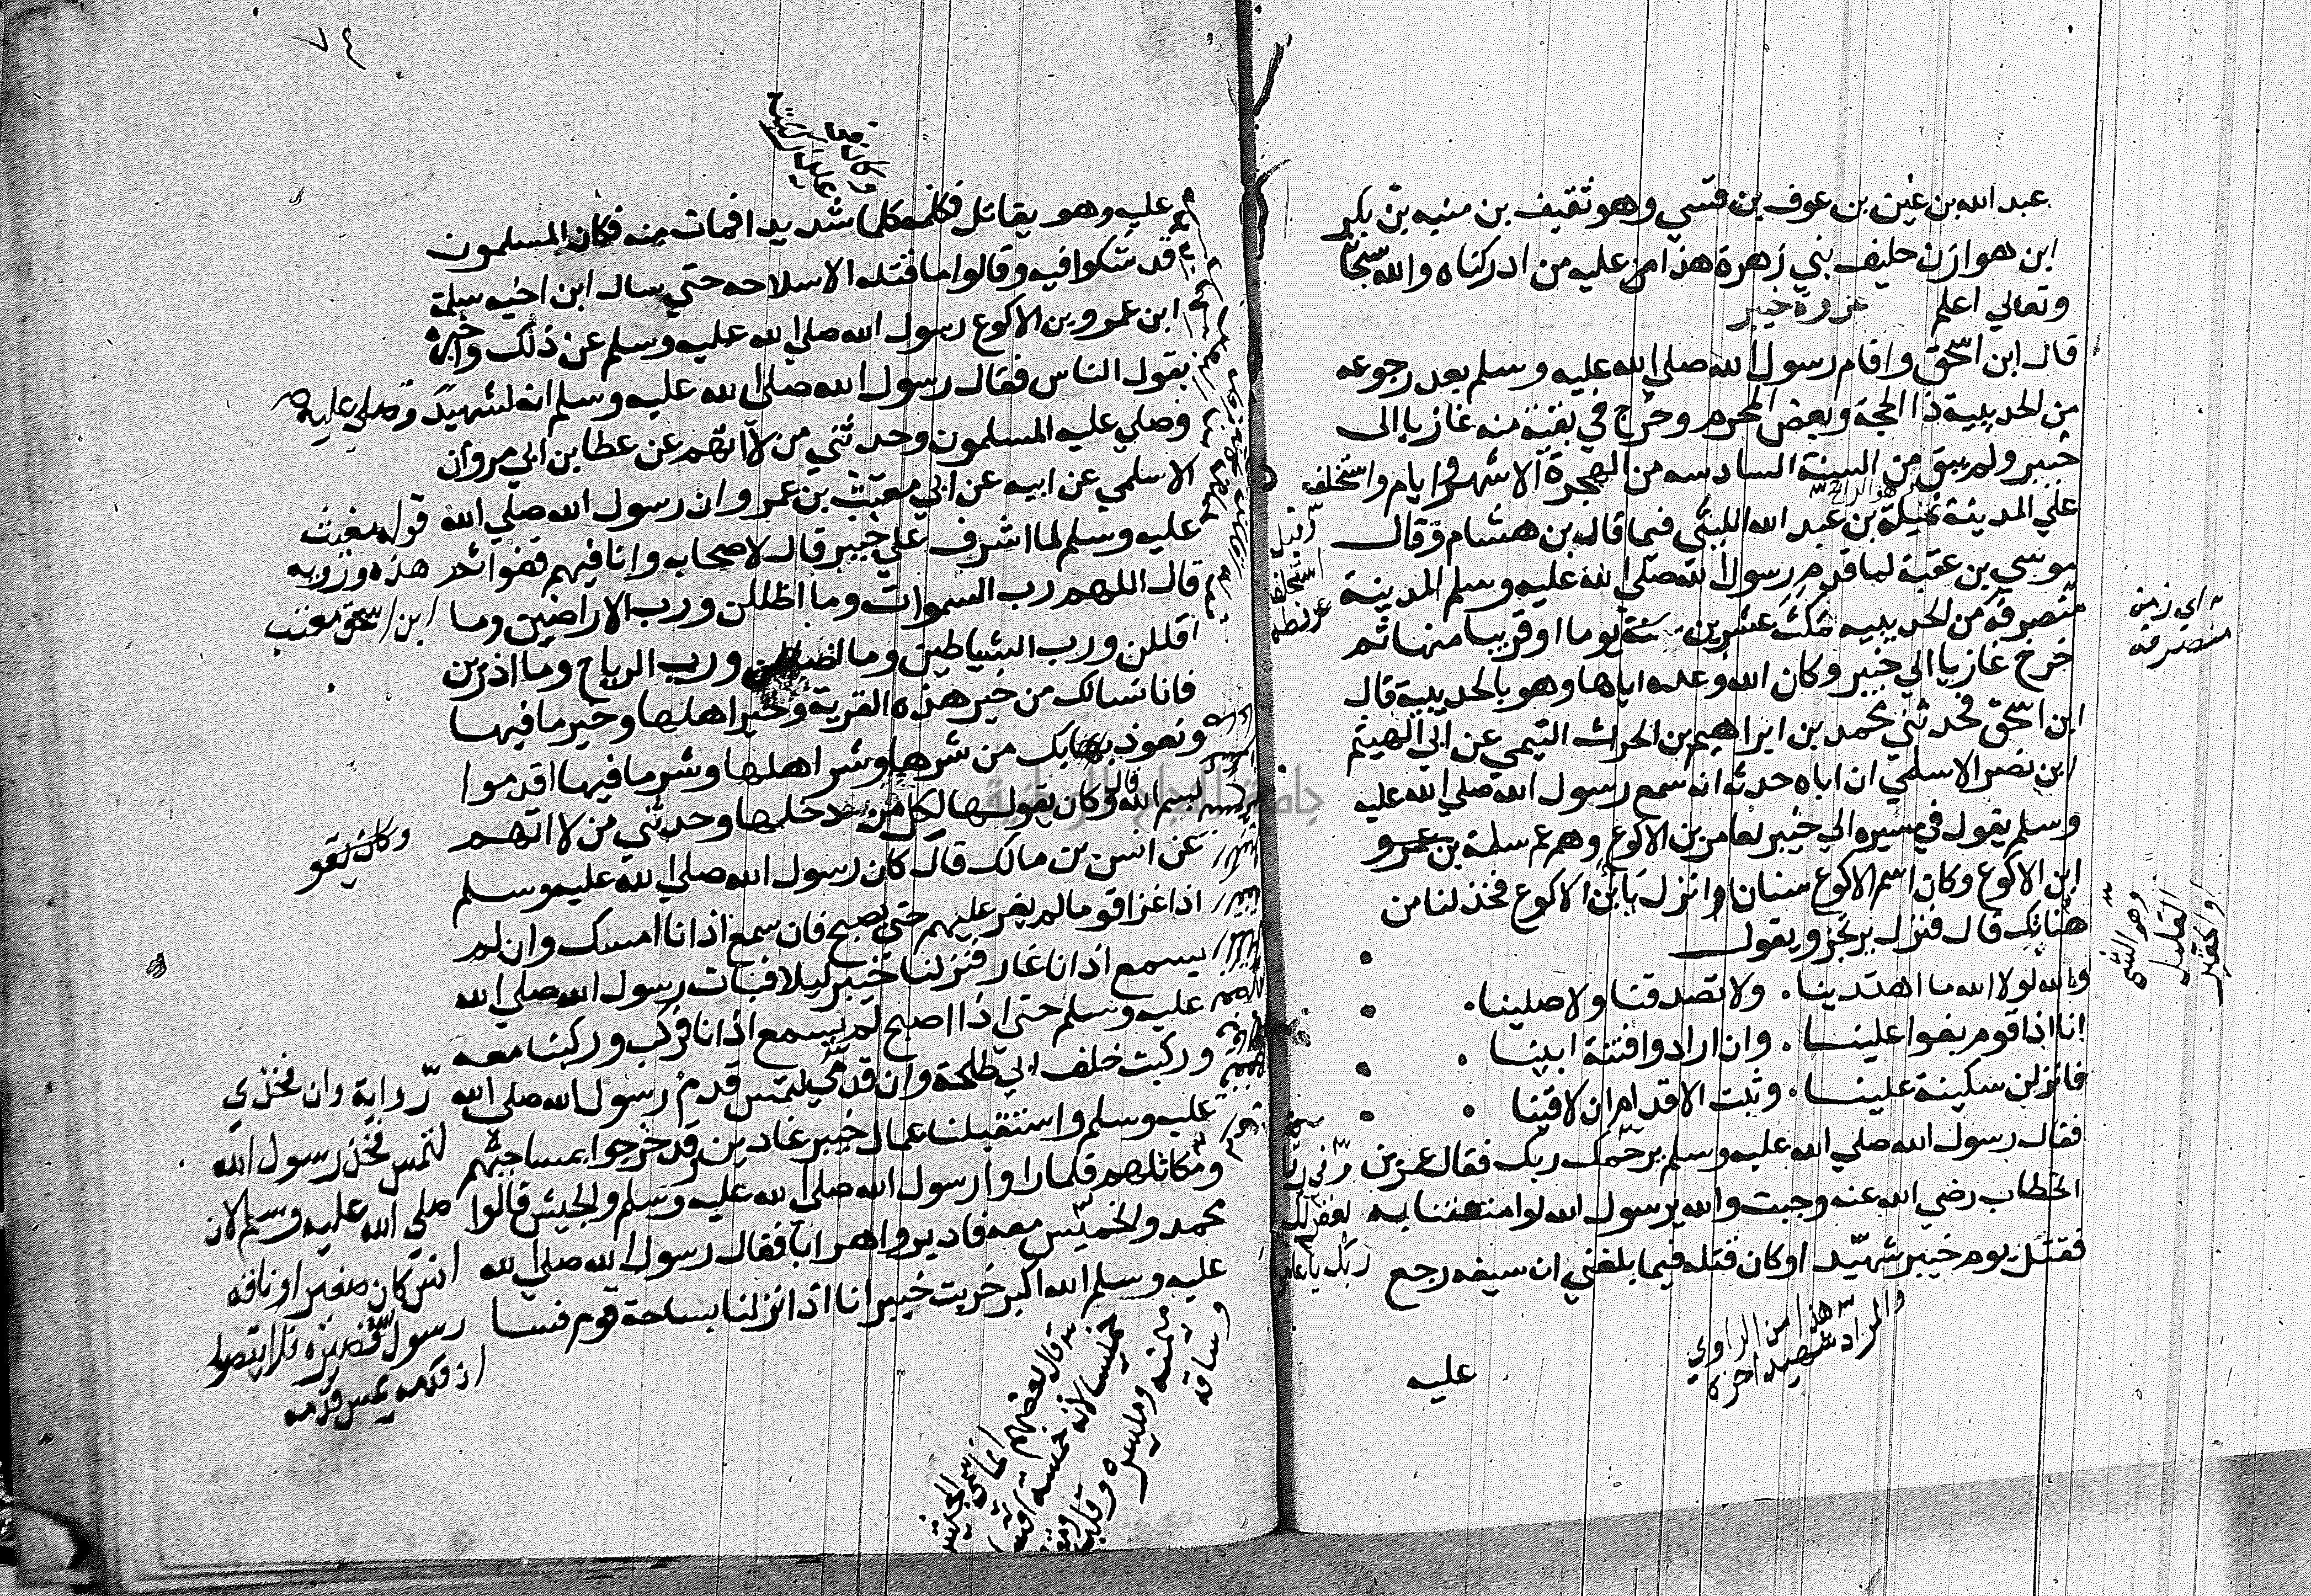 عبد الله بن غين بن عوف بن قسي وهو ثقيف بن منبه بن بكر
ابن هوازن حليف بني زهرة هذا من عليه من ادركناه والله سبحا
وتعالي اعلم غزوة خيبر
قال ابن اسحق واقام رسول الله صلي الله عليه وسلم بعد رجوعه
من الحديبية ذا الحجة وبعض المحرم وخرج في بقية منه غازيا الى
خيبر ولم يبق من السنة السادسه من الهجرة الا شهر وايام واستخلف
علي المدينة نميلة بن عبد الله الليثي فيما قال بن هشام وقال
هو الراجح
وقيل
استخلف
عرفطه
موسي بن عقبة لما قدم رسول الله صلي الله عليه وسلم المدينة
منصرفه من الحديبيه مكث عشرين يوما او قريبا منها ثم
اي زمن
منصرفه
خرج غازيا الي خيبر وكان الله وعده اياها وهو بالحديبية قال
ابن اسحق فحدثني محمد بن ابراهيم بن الحرث التيمي عن ابي الهيثم
ابن نصر الاسلمي ان اباه حدثه انه سمع رسول الله صلي الله عليه
وسلم يقول في مسيره الي خيبر لعامر بن الاكوع وهو عم سلمة بن عمرو
ابن الاكوع وكان اسم الاكوع سنان انزل يا بن الاكوع فخذ لنا من
هناتك قال فنزل يرتجز ويقول
والله لولا الله ما اهتدينا . ولا تصدقنا ولا صلينا .
انا اذا قوم بغوا علينا . وان ارادوا فتنة ابينا .
فانزلن سكينة علينا . وثبت الاقدام ان لاقينا .
فقال رسول الله صلي الله عليه وسلم يرحمك ربك فقال عمر بن
الخطاب رضي الله عنه وجبت والله يرسول الله لو امتعتنا به
فقتل يوم خيبر شهيدا وكان قتله فيما بلغني ان سيفه رجع
هذا من الراوي
والمراد شهيد اخرة
عليه
٧٤
عليه وهو يقاتل فكلمه كلما شديدا فمات منه فكان المسلمون
قد شكوا فيه وقالوا ما قتله الا سلاحه حتي سال ابن اخيه سلمة
ابن عمرو بن الاكوع رسول الله صلي الله عليه وسلم عن ذلك واخبره
بقول الناس فقال رسول الله صلي الله عليه وسلم انه لشهيد وصلي عليه
وصلي عليه المسلمون وحدثني من لا اتهم عن عطا بن ابي مروان
الاسلمي عن ابيه عن ابي معتب بن عمرو ان رسول الله صلي الله
عليه وسلم لما اشرف علي خيبر قال لاصحابه وانا فيهم قفوا ثم
قوله مغيث
هذه ورويه
ابن اسحق معتب
قال اللهم رب السموات وما اظللن ورب الاراضين وما
اقللن ورب الشياطين وما اضللن ورب الرياح وما اذرين
فانا نسالك من خير هذه القرية وخير اهلها وخير ما فيها
ونعوذ بك من شرها وشر اهلها وشر ما فيها اقدموا
بسم الله قال وكان يقولها لكل من دخلها وحدثني من لا اتهم
وكان يقو
عن انس بن مالك قال كان رسول الله صلي الله عليه وسلم
اذا غزا قوما لم يغر عليهم حتي يصبح فان سمع اذانا امسك وان لم
يسمع اذانا غار فنزلنا خيبر ليلا فبات رسول الله صلي الله
عليه وسلم حتى اذا اصبح لم يسمع اذانا فركب وركبنا معه
وركبت خلف ابي طلحة وان قدمي لتمس قدم رسول الله صلي الله
عليه وسلم واستقبلنا عمال خيبر غادين قد خرجوا بمساحيهم
ومكاتلهم فلما راوا رسول الله صلي الله عليه وسلم والجيش قالوا
محمد والخميس معه فادبروا هرابا فقال رسول الله صلي الله
عليه وسلم الله اكبر خربت خيبر انا اذا نزلنا بساحة قوم فسا
رواية وان فخذي
لتمس فخذ رسول الله
صلي الله عليه وسلم لان
انس كان صغيرا وناقة
ان قدمه تمس قدمه
قال بعضهم انما سمي الجيش
خميسا لانه خمسة
ميمنه وميسره وقلب
وساقه